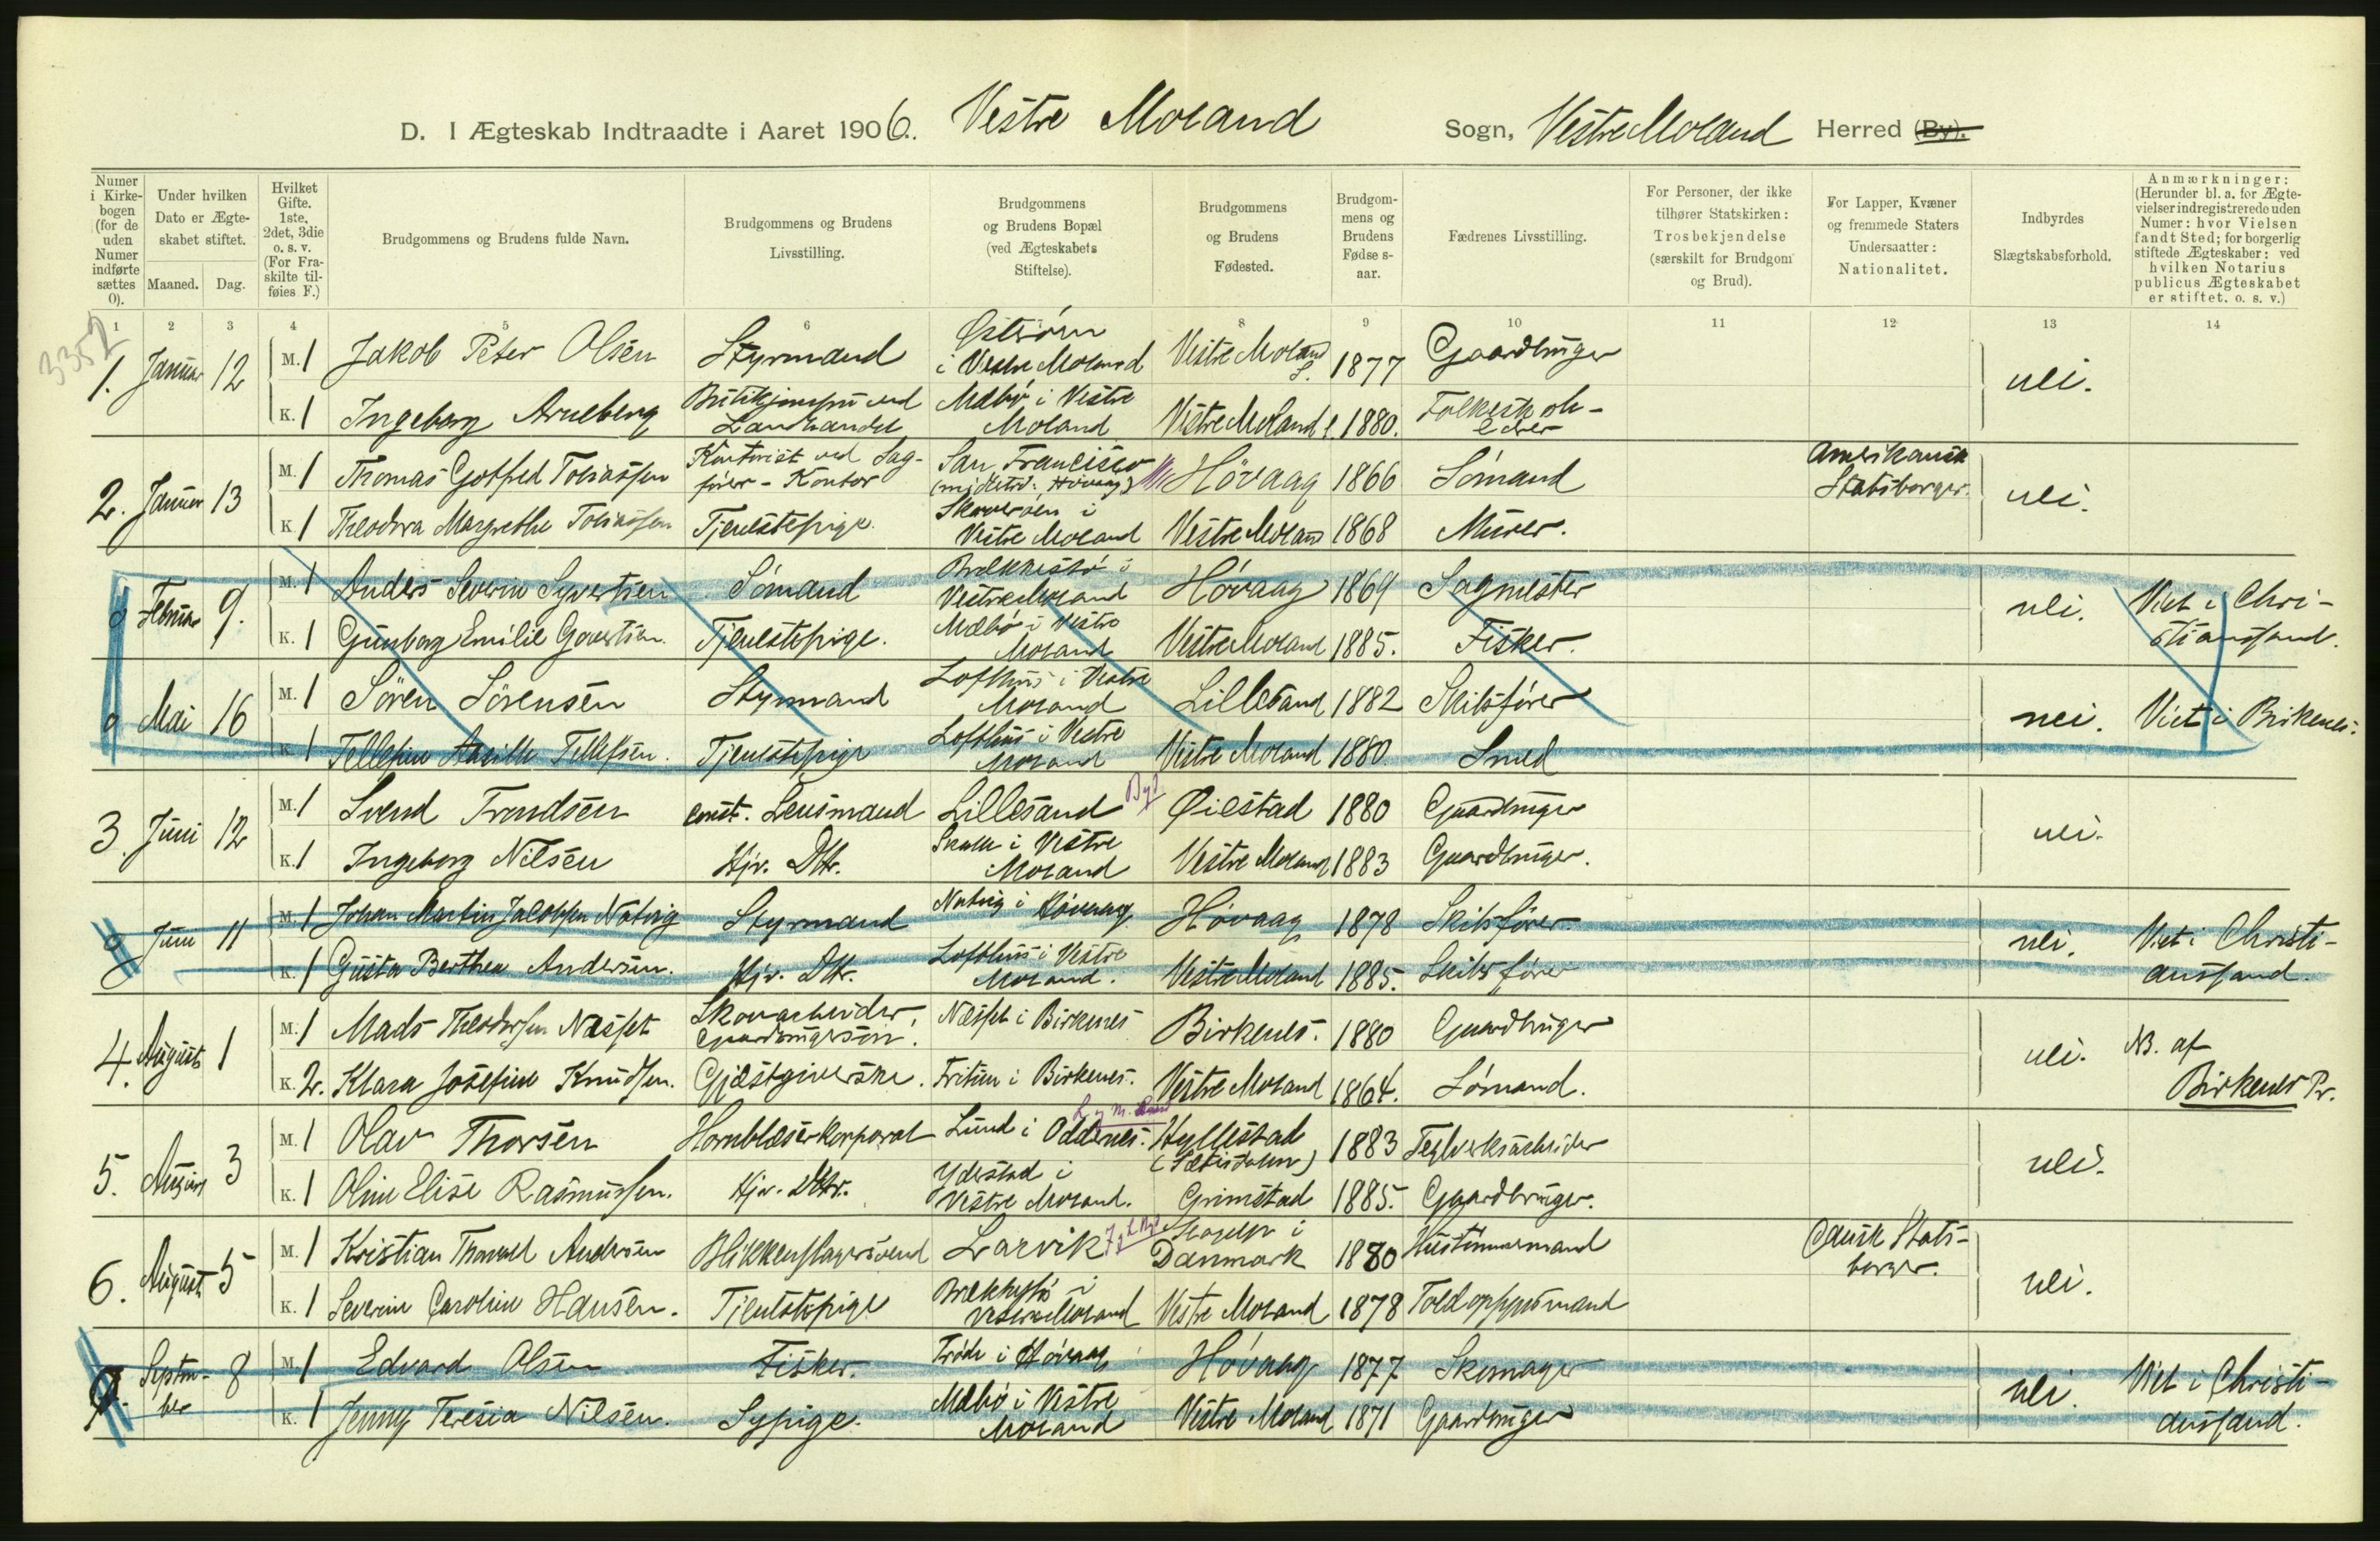 D. I Ægteskab Indtraadte i Aaret 1906. Vestre Moland Sogn, Vestre Moland Herred (By).
Numer i Kirkebogen (for de uden Numer indførte sættes 0).
Under hvilken Dato er Ægteskabet stiftet.
Maaned. Dag.
Hvilket Gifte. 1ste, 2det, 3die o. s. v. (For Fraskilte tilføies F.)
Brudgommens og Brudens fulde Navn.
Brudgommens og Brudens Livsstilling.
Brudgommens og Brudens Bopæl (ved Ægteskabets Stiftelse).
Brudgommens og Brudens Fødested.
Brudgommens og Brudens Fødselsaar.
Fædrenes Livsstilling.
For Personer, der ikke tilhører Statskirken: Trosbekjendelse (særskilt for Brudgom og Brud).
For Lapper, Kvæner og fremmede Staters Undersaatter: Nationalitet.
Indbyrdes Slægtskabsforhold.
Anmærkninger: (Herunder bl. a. for Ægtevielser indregistrerede uden Numer: hvor Vielsen fandt Sted; for borgerlig stiftede Ægteskaber: ved hvilken Notarius publicus Ægteskabet er stiftet, o. s. v.)
1 2 3 4 5 6 7 8 9 10 11 12 13 14
3352
1. Januar 12 M. 1 Jakob Peter Olsen Styrmand i Vestre Moland Vestre Moland S. 1877 Gaardbruger nei.
K. 1 Ingeborg Arneberg Landhandel Mæbø i Vestre Moland Vestre Moland S. 1880. Folkeskole-
2. Januar 13 M. 1 Thomas Gotfred Tobiassen Kontorist ved Sagfører-Kontor San Francisco (midlertid. Høvaag) Høvaag 1866 Sømand Amerikansk Statsborger. nei.
K. 1 Theodora Margrethe Tobiassen Tjenestepige. i Vestre Moland Vestre Moland 1868 Murer.
0 Februar 9. M. 1 Anders Severin Syvertsen Sømand Brækkestø i Vestre Moland Høvaag 1869 Sagmester nei. Viet i Christianssand.
K. 1 Gunborg Emilie Govertsen. Tjenestepige. Mæbø i Vestre Moland Vestre Moland 1885. Fisker.
0 Mai 16 M. 1 Søren Sørensen Styrmand Lofthus i Vestre Moland Lillesand 1882 Skibsfører nei. Viet i Birkenes.
K. 1 Tellefsen. Tjenestepige Lofthus i Vestre Moland Vestre Moland 1880. Smed
3. Juni 12 M. 1 Svend Trondsen const. Lensmand Lillesand By Øiestad 1880 Gaardbruger nei.
K. 1 Ingeborg Nilsen Hjv. Dtr. i Vestre Moland Vestre Moland 1883 Gaardbruger.
0 Juni 11 M. 1 Johan Martin Jacobsen Natvig Styrmand Natvig i Høvaag Høvaag 1878 Skibsfører. nei. Viet i Christianssand.
K. 1 Gusta Berthea Andersen. Hjv. Dtr. Lofthus i Vestre Moland. Vestre Moland 1885. Skibsfører
4. August 1 M. 1 Mads Theodorsen Næsset Skovarbeider, Gaardbrugersøn. Næsset i Birkenes Birkenes. 1880 Gaardbruger nei. NB. af Birkenes Pr.
K. 2. Klara Josefine Knudsen. Gjæstgiverske. i Birkenes. Vestre Moland 1864. Sømand.
5. August 3 M. 1 Olav Thorsen Hornblæserkorporal Lund i Oddernes. Hyllestad (Sætisdalen) 1883 Teglverksarbeider nei.
K. 1 Oline Elise Rasmussen. Hjv. Dtr. Ydestad i Vestre Moland. Grimstad 1885. Gaardbruger.
6. August 5 M. 1 Kristian Thorvald Andersen Blikkenslagersvend Larvik i Danmark 1880 Hustømmermand Dansk Statsborger. nei.
K. 1 Severine Caroline Hansen. Tjenestepige Brækkestø i Vestre Moland Vestre Moland 1878 Toldopsynsmand
0. September 8 M. 1 Edvard Olsen Fisker. i Høvaag Høvaag 1877 Skomager nei. Viet i Christianssand.
K. 1 Jenny Teresia Nilsen. Sypige. Mæbø i Vestre Moland Vestre Moland 1871 Gaardbruger